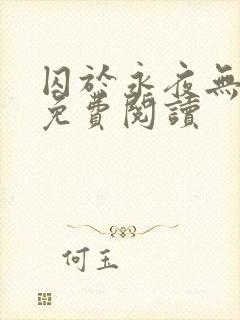 囚於永夜無
免費閱讀
何玉